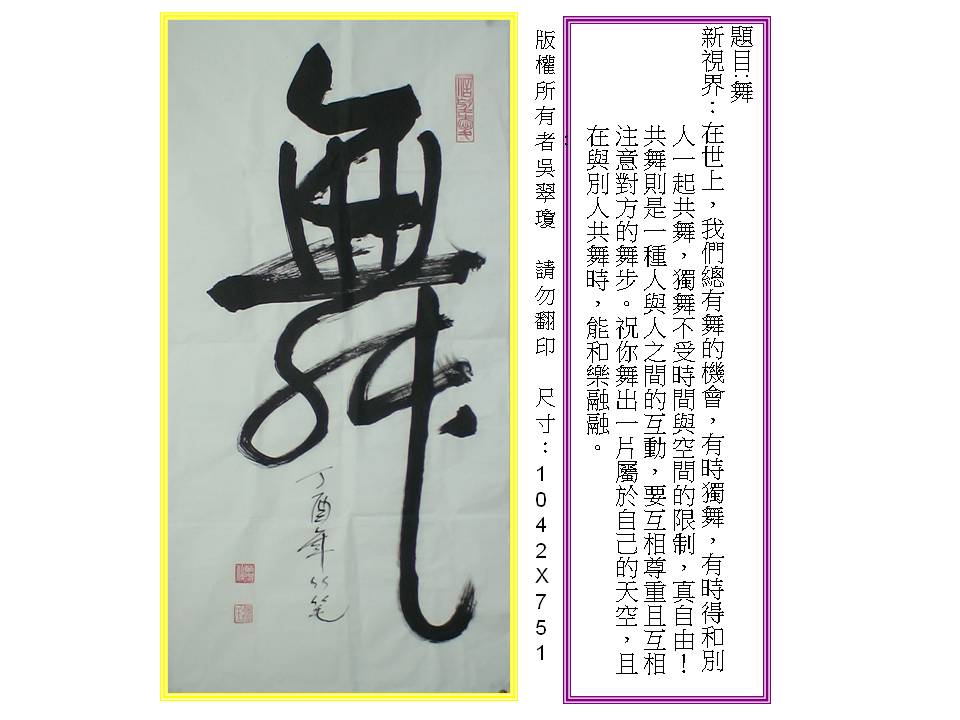 題目:舞
新視界：在世上，我們總有舞的機會，有時獨舞，有時得和別
人一起共舞，獨舞不受時間與空間的限制，真自由！
共舞則是一種人與人之間的互動，要互相尊重且互相
注意對方的舞步。祝你舞出一片屬於自己的天空，且
在與別人共舞時，能和樂融融。
版權所有者吳翠瓊　請勿翻印　尺寸：1042X751
舞
丁酉年